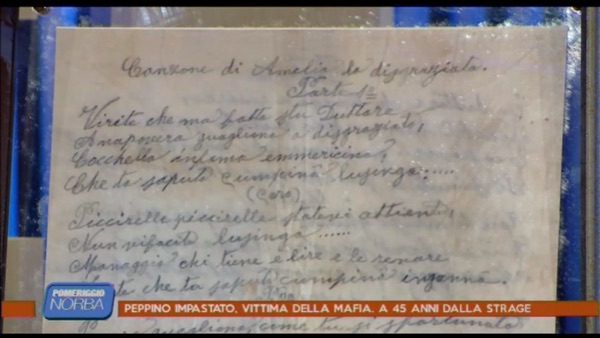 Canzone di Amelia la disgraziata.
Parte 1a
Virite che ma fatto stu Duttore
A na povera quagliona a disgraziata,
Cocchella infama
Che ta saputo cumpinà lusinga......
(Coro)
Piccirelle piccirelle stateve attiente,
Nun vi facite lusinga......
Managgia chi tiene e lire e le renare
che ta saputo cumpinà inganna.
POMERIGGIO
NORBA
PEPPINO IMPASTATO, VITTIMA DELLA MAFIA. A 45 ANNI DALLA STRAGE
quagliona, come tu si sfortunata